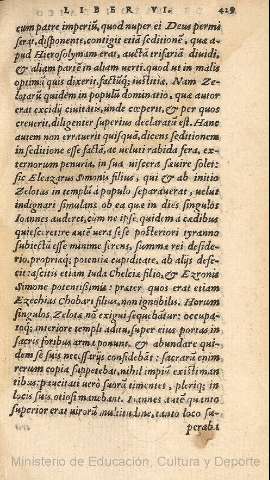 LIBER VI. 429
cum patre imperiū, quod nuper ei Deus permi
serat, disponente, contigit etiā seditionē, quæ a-
pud Hierosolymam erat, auctā trifariā diuidi,
& aliam partē in aliam uerti. quod ut in malis
optimū quis dixerit, factūq́; iustitia. Nam Ze-
lotarū quidem in populū dominatio, quæ autor
erat excidij ciuitatis, unde cœperit, & per quos
creuerit, diligenter superius declaratū est. Hanc
autem non errauerit quisquā, dicens seditionem
in seditione esse factā, ac ueluti rabida fera, ex-
ternorum penuria, in sua uiscera sæuire solet:
sic Eleazarus Simonis filius, qui & ab initio
Zelotas in templū à populo separauerat, uelut
indignari simulans ob ea quæ in dies singulos
Ioannes auderet, cum ne ipse quidem à cædibus
quiesceret: re autē uera se se posteriori tyranno
subiectū esse minime ferens, summæ rei deside-
rio, propriæq́; potentiæ cupiditate, ab alijs defe-
cit: ascitis etiam Iuda Chelciæ filio, & Ezronis
Simone potentissimis: præter quos erat etiam
Ezechias Chobari filius, non ignobilis. Horum
singulos Zelotæ nō exigui sequebātur: occupa-
toq́; interiore templi aditu, super eius portas in
sacris foribus arma ponunt. & abundare qui-
dem se suis necessarijs confidebāt: sacrarū enim
rerum copia suppetebat, nihil impiū existiman
tibus: paucitati uerò suorū timentes, pleriq́; in
locis suis otiosi manebant. Ioannes autē quanto
superior erat uirorū multitudine, tanto loco su-
perabat
Ministerio de Educación, Cultura y Deporte